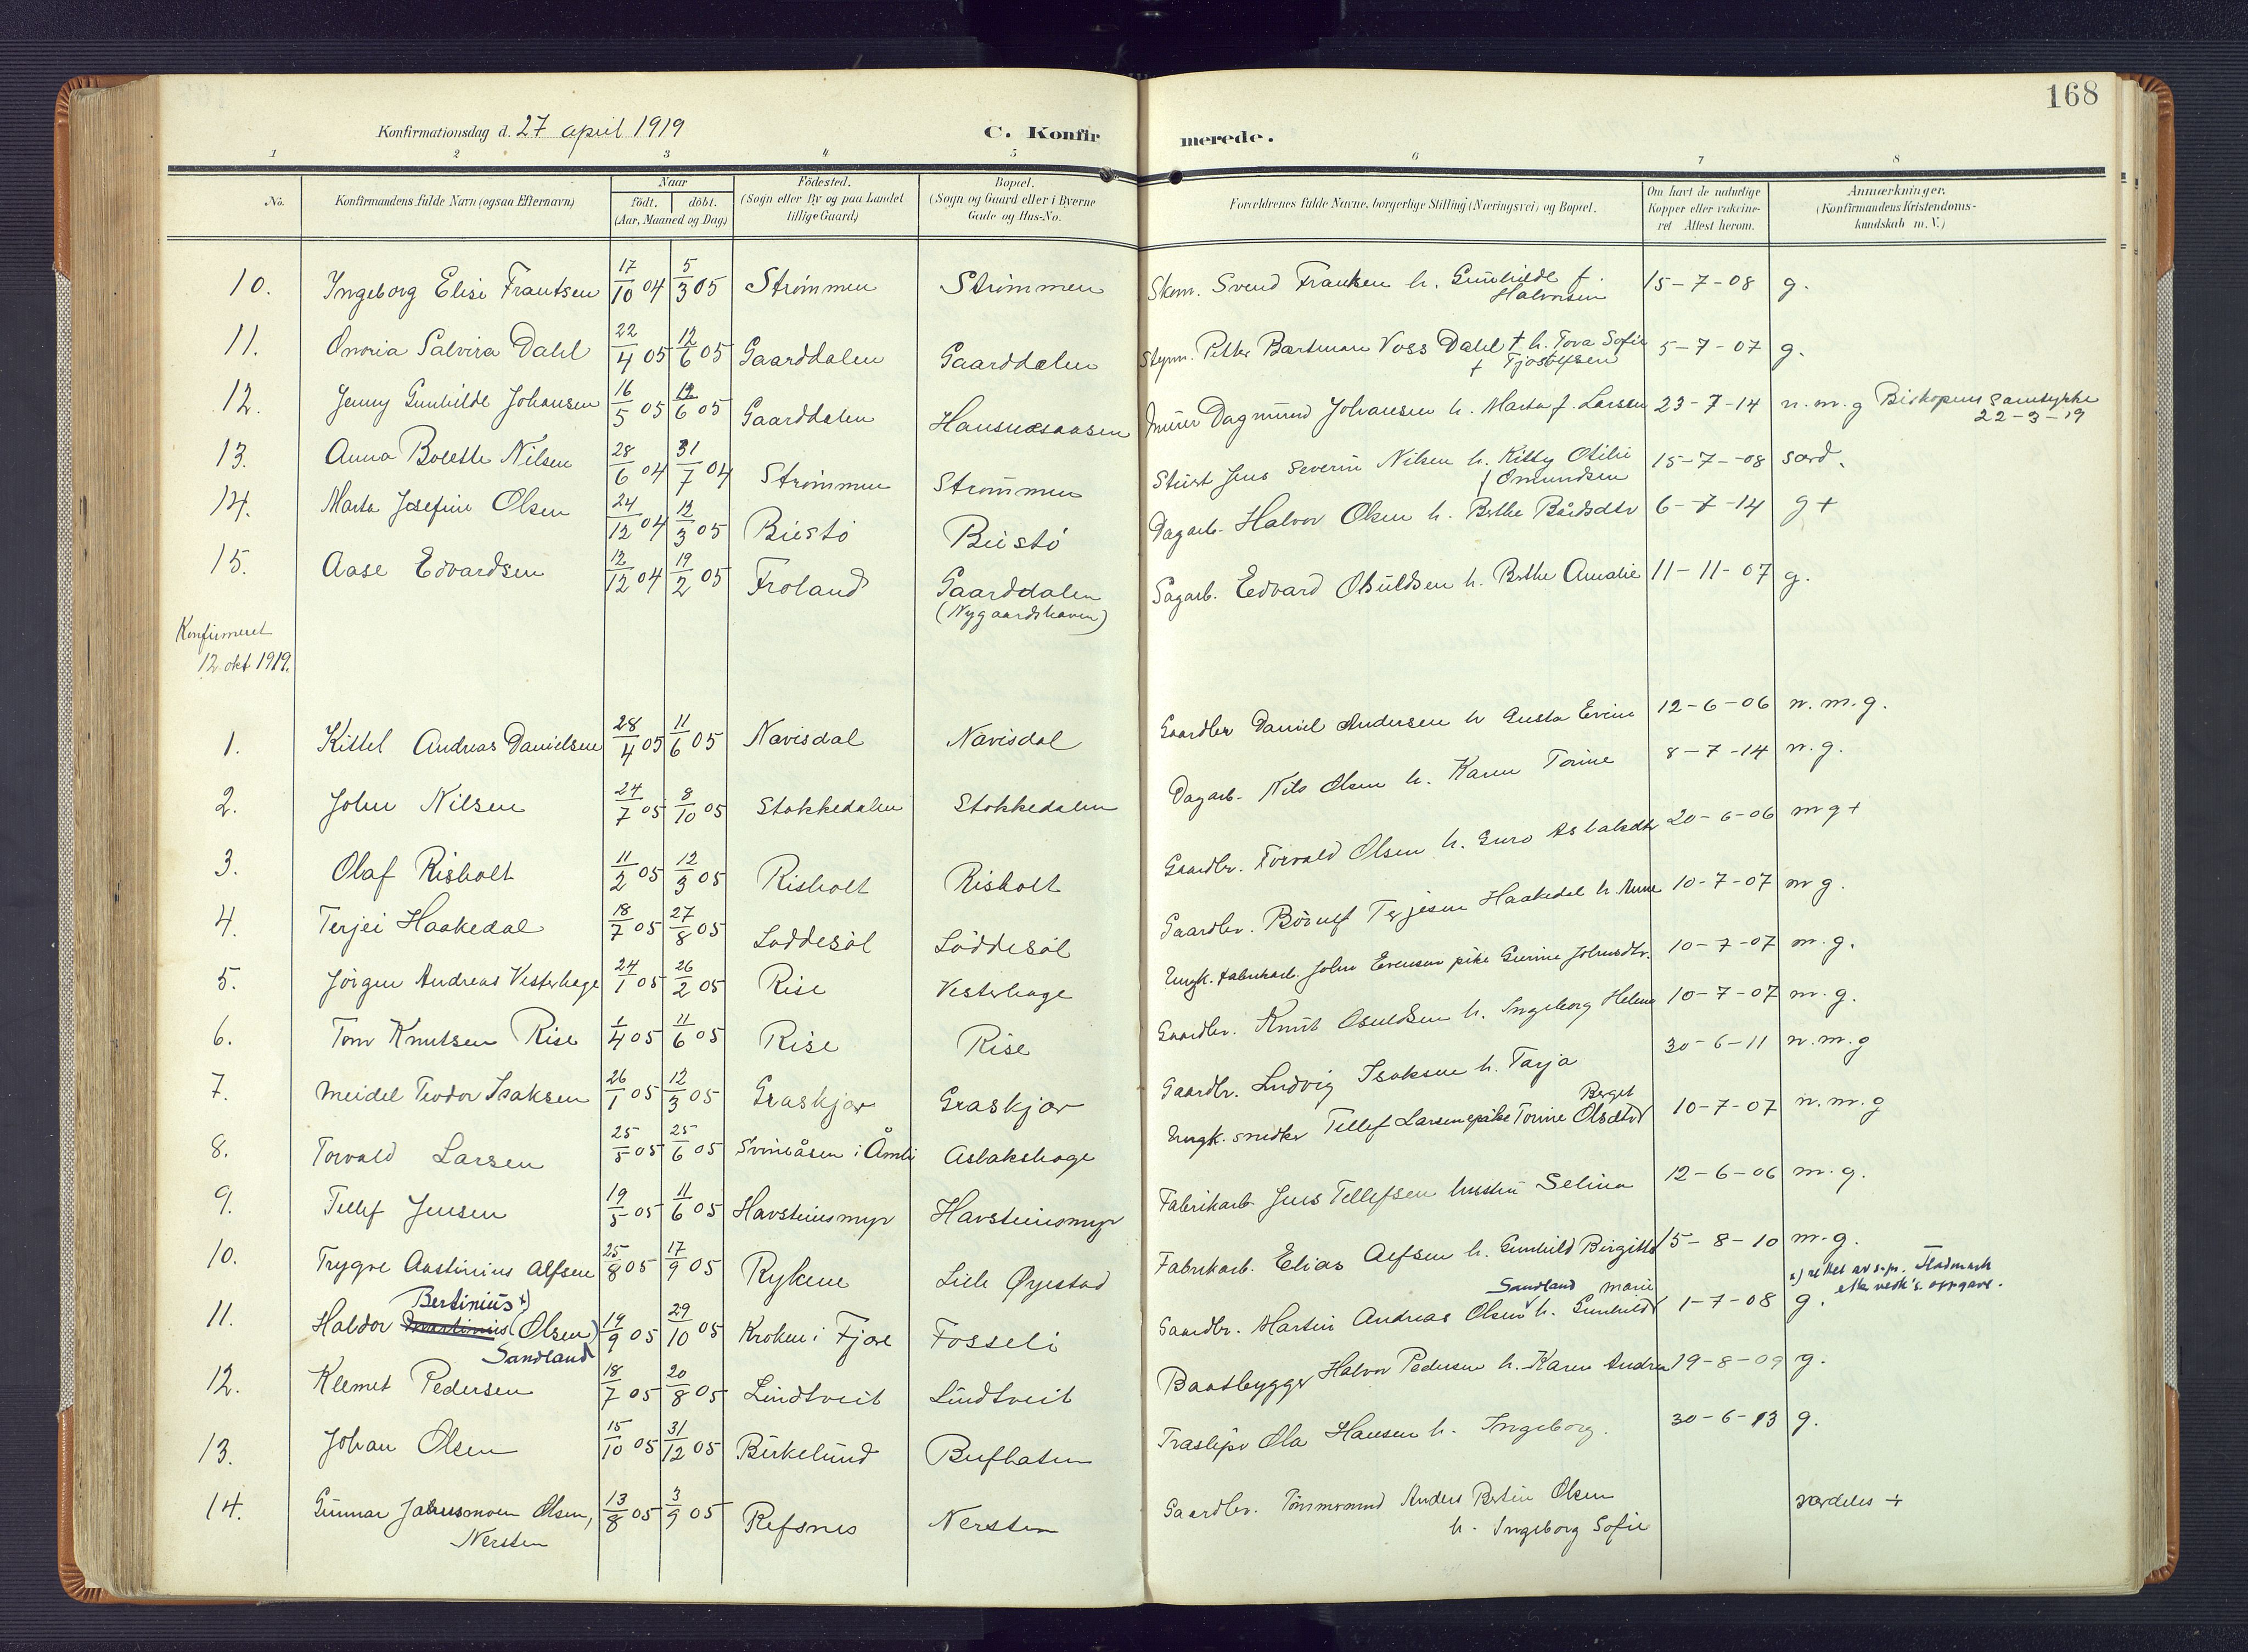 168
Konfirmationsdag d. 27 april 1919
C. Konfirmerede.
1 2 3 4 5 6 7 8
No. Konfirmandens fulde Navn (ogsaa Efternavn) Naar födt. döbt. (Aar, Maaned og Dag) Födested. (Sogn eller By og paa Landet tillige Gaard) Bopæl. (Sogn og Gaard eller i Byerne Gade og Hus-No. Forældrenes fulde Navne, borgerlige Stilling (Næringsvei) og Bopæl. Om havt de naturlige Kopper eller vakcineret Attest herom. Anmærkninger. (Konfirmandens Kristendomskundskab m. V.)
10. Ingeborg Elise Frantsen 17/10 04 5/3 05 Strömmen Strömmen Skom. Svend Frantsen h. Gunhilde f. Halvorsen 15-7-08 g.
11. Onoria Salvira Dahl 22/4 05 12/6 05 Gaarddalen Gaarddalen Styrm. Petter Bartman Voss Dahl † h. Tova Sofie † Tjostofsen 5-7-07 g.
12. Jenny Gunhilde Johansen 16/5 05 12/6 05 Gaarddalen Murer Dagmund Johansen h. Marta f. Larsen 23-7-14 n.m.g Biskopens samtykke 22-3-19
13. Anna Bolette Nilsen 28/6 04 31/7 04 Strömmen Strömmen Jens Severin Nilsen h. Kitty Otilie f Omundsen 15-7-08 særd.
14. Marta Josefine Olsen 24/12 04 12/3 05 Buestö Buestö Dagarb. Halvor Olsen h. Berthe Bårdsdtr 6-7-14 g +
15. Aase Edvardsen 12/12 04 19/2 05 Froland Gaarddalen (Nygaardshaven) Sagarb. Edvard Osuldsen h. Berthe Amalie 11-11-07 g.
Konfirmeret
12 okt 1919.
1. Kittel Andreas Danielsen 28/4 05 11/6 05 Navisdal Navisdal Gaardbr Daniel Andersen h Gusta Evine 12-6-06 n.m.g.
2. John Nilsen 24/7 05 8/10 05 Stokkedalen Stokkedalen Dagarb. Nils Olsen h. Karen Torine 8-7-14 n.g.
3. Olaf Risholt 11/2 05 12/3 05 Risholt Risholt Gaardbr. Torvald Olsen h. Guro Aslaksdtr 20-6-06 m g +
4. Terjei Haakedal 18/7 05 27/8 05 Löddesöl Löddesöl Gaardbr. Börulf Terjesen Haakedal h. Anne 10-7-07 m g.
5. Jörgen Andreas Vesterhage 24/1 05 26/2 05 Rise Vesterhage Ungk. fabrikarb. John Evensen pike Gurine Johnsdtr. 10-7-07 m.g.
6. Tom Knutsen Rise 1/4 05 11/6 05 Rise Rise Gaardbr. Knut Osuldsen h. Ingeborg Helene 10-7-07 m.g.
7. Meidel Teodor Isaksen 26/1 05 12/3 05 Graskjær Graskjær Gaardbr. Ludvig Isaksen h. Tarja 30-6-11 n.m.g
8. Torvald Larsen 25/5 05 25/6 05 Svinåsen i Åmli Aslakshage Ungk. snedker Tellef Larsen pike Torine Berget Olsdtr 10-7-07 n.m.g
9. Tellef Jensen 19/5 05 11/6 05 Havsteinsmyr Havsteinsmyr Fabrikarb. Jens Tellefsen hustru Selina 12-6-06 m.g.
10. Trygve Aastinius Alfsen 25/8 05 17/9 05 Rykene Lille Øyestad Fabrikarb. Elias Alfsen h. Gunhild Birgitte 15-8-10 m.g.
11. Haldor Martinius Bertinius x) (Olsen) Sandland 19/9 05 29/10 05 Kroken i Fjære Fosseli Gaardbr. Martin Andreas Olsen Sandland h. Gunhild Marie 1-7-08 g. x) rettet av s.pr. Fladmark etter vedk's. oppgave.
12. Klemet Pedersen 18/7 05 20/8 05 Lindtveit Lindtveit Baatbygger Halvor Pedersen h. Karen Andrea 19-8-09 g.
13. Johan Olsen 15/10 05 31/12 05 Birkelund Træslipr Ola Hansen h. Ingeborg. 30-6-13 g.
14. Gunnar Olsen, Nersten 13/8 05 3/9 05 Refsnes Nersten Gaardbr. Tömmermand Anders Bertin Olsen h. Ingeborg Sofie særdeles +